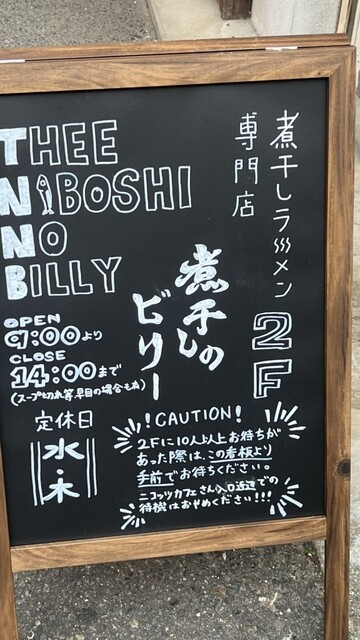 煮干しラーメン
専門店
THEE
NIBOSHI
NO
BILLY
煮干しの
ビリー
2F
OPEN
9:00より
CLOSE
14:00まで
(スープ切れ等早目の場合も有)
定休日
水・木
!CAUTION!
2Fに10人以上お待ちが
あった際は、この看板より
手前でお待ちください。
ニコッツカフェさん入口近辺での
待機はおやめください!!!